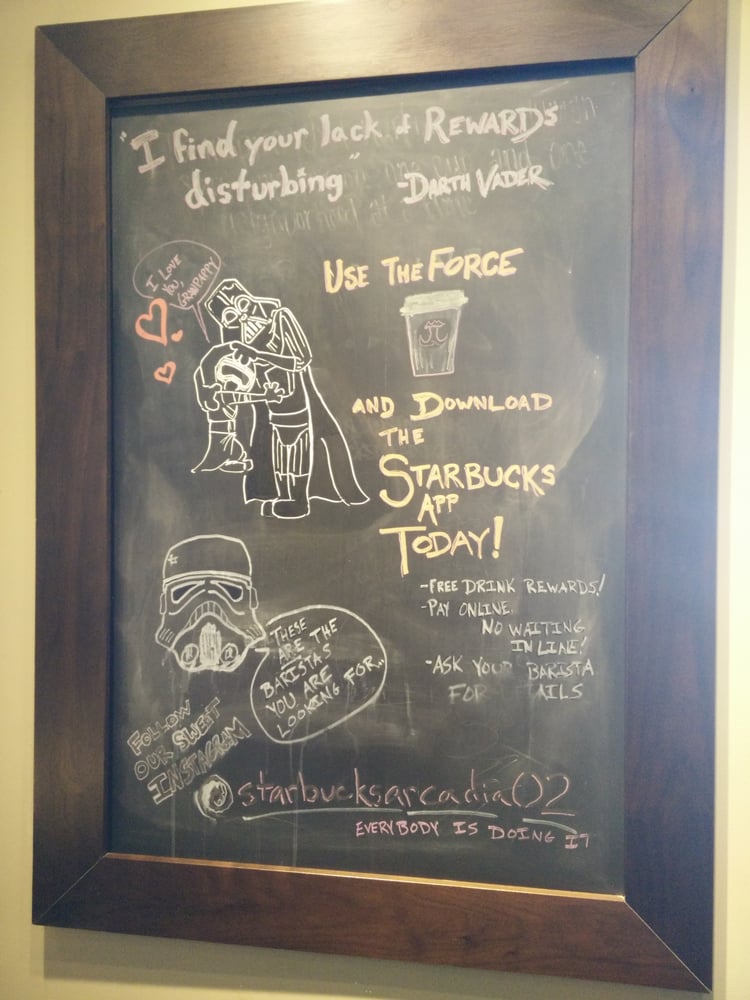 "I find your lack of REWARDS
disturbing" -DARTH VADER
I LOVE
YOU,
GRANPAPPY
USE THE FORCE
AND DOWNLOAD
THE
STARBUCKS
APP
TODAY!
-FREE DRINK REWARDS!
-PAY ONLINE.
NO WAITING
IN LINE!
-ASK YOUR BARISTA
FOR TAILS
THESE
ARE THE
BARISTAS
YOU ARE
LOOKING FOR..
FOLLOW
OUR SWEET
INSTAGRAM
@starbucksarcadia02
EVERYBODY IS DOING IT